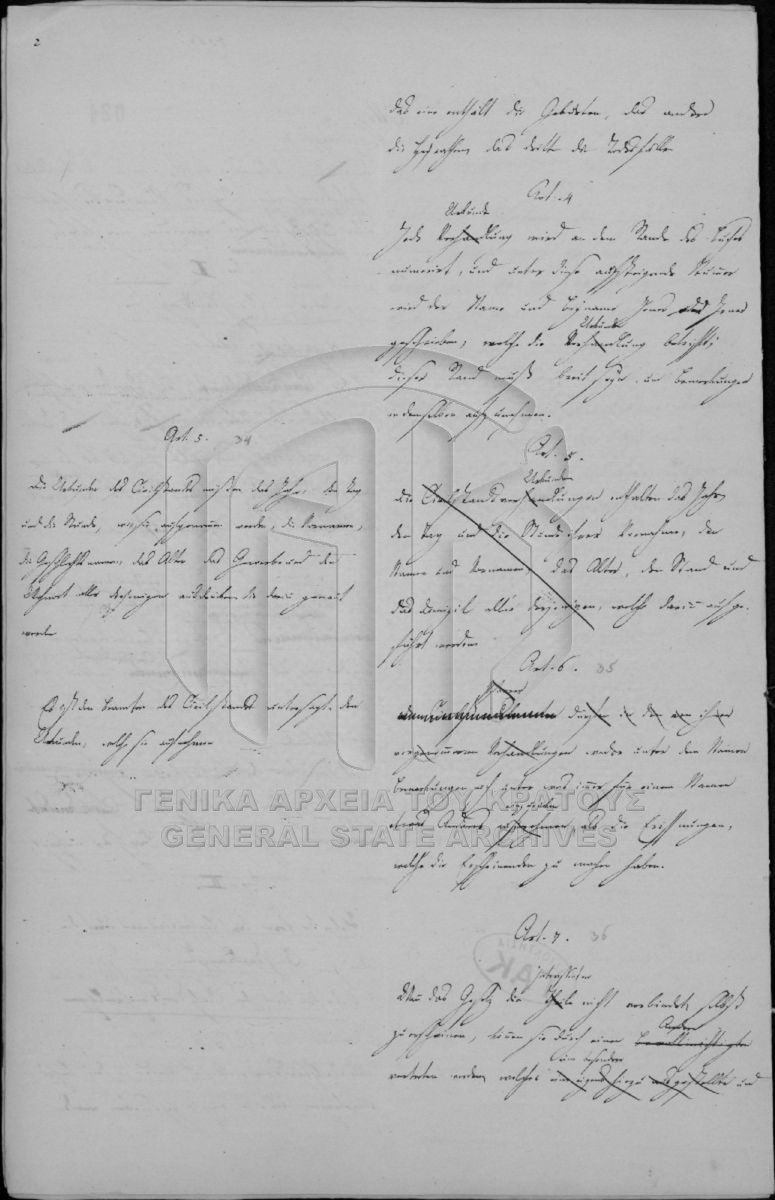 2
das eine enthält die Geburten, das andere
die Heyrathen, das dritte die Todesfälle
Art. 4
Urkunde
Jede Verhandlung wird an dem Rande des Buches
numerirt, und unter diese Nummer
wird der Name und Beyname Jenes oder Jener
Urkunde
geschrieben, welche die Verhandlung betrifft;
dieser Rand muß breit seyn um Bemerkungen
aufzunehmen.
Art. 5. 34
Die Urkunden des Civilstandes müssen das Jahr, den Tag
und die Stunde, wo sie aufgenommen werden, die Vornamen,
die Geschlechtsnamen, das Alter das Gewerbe und den
Wohnort aller derjenigen ausdrücken die darin genannt
werden
Es ist den Beamten des Civilstandes untersagt, den
Urkunden, welche sie aufnehmen
Art. 5.
Urkunden
Die Civilstandsverhandlungen enthalten das Jahr,
den Tag und die Stunde ihrer Vornahme, den
Namen und Vornamen, das Alter, den Stand und
das Domizil aller derjenigen, welche darin aufge-
führt werden
Art. 6. 35
dürfen in den von ihnen
vorgenommenen Verhandlungen weder unter dem Namen
Bemerkungen noch unter was immer für einem Namen
etwas Anderes aufnehmen als die Eröffnungen,
welche die Erscheinenden zu machen haben.
Art. 7. 36
Wenn das Gesetz die Theile nicht verbindet, selbst
Andern
zu erscheinen, können sie durch einen Bevollmächtigten
vertreten werden, welcher hiezu und
ΓΕΝΙΚΑ ΑΡΧΕΙΑ ΤΟΥ ΚΡΑΤΟΥΣ
GENERAL STATE ARCHIVES